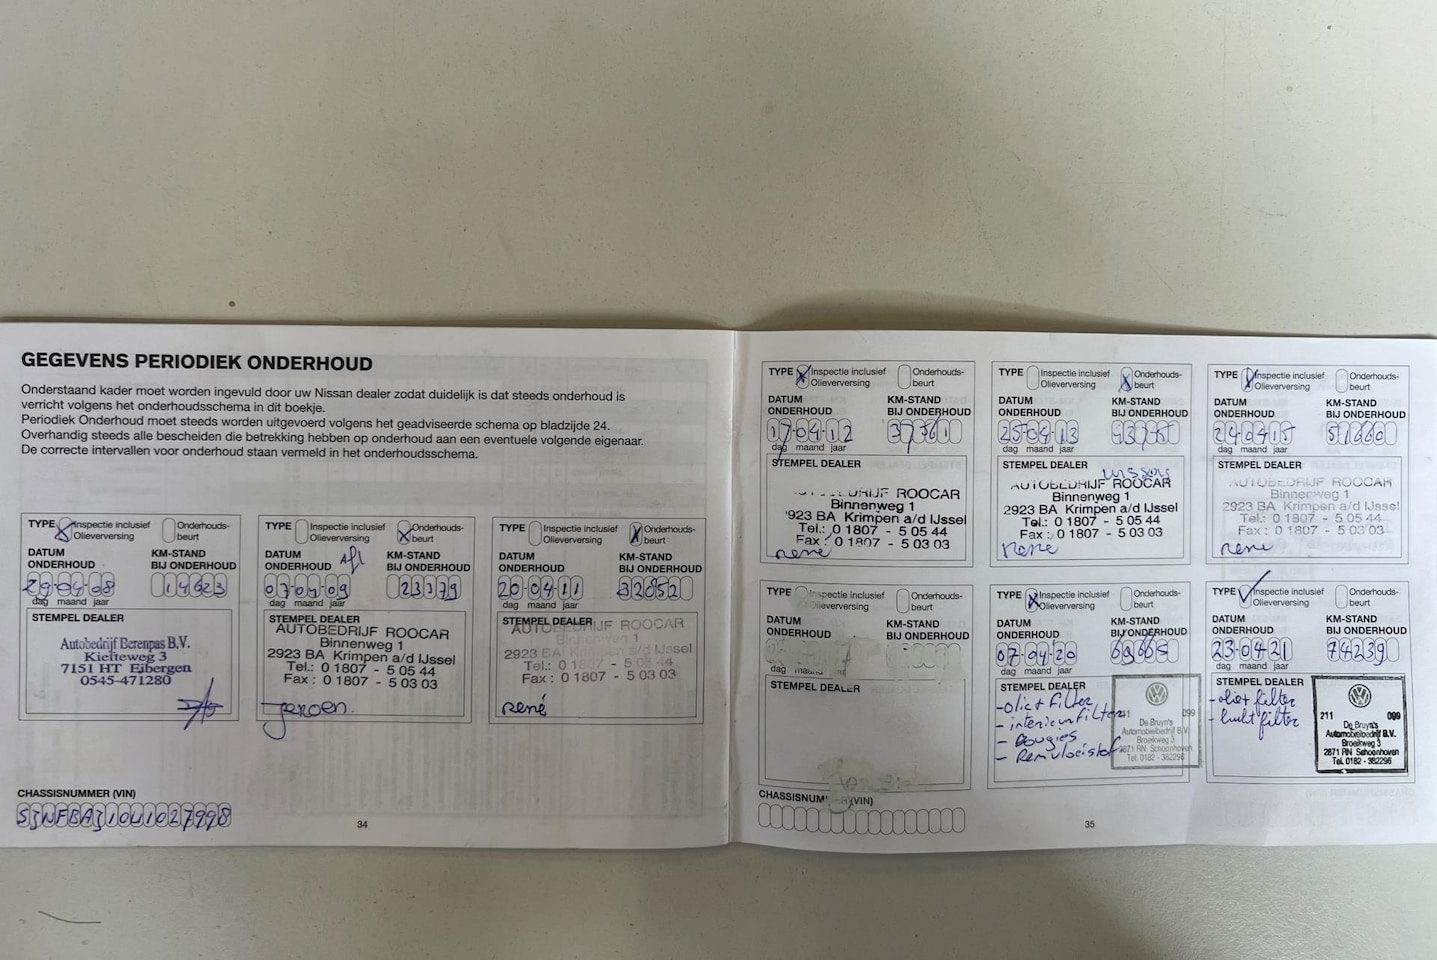 GEGEVENS PERIODIEK ONDERHOUD
Onderstaand kader moet worden ingevuld door uw Nissan dealer zodat duidelijk is dat steeds onderhoud is
verricht volgens het onderhoudsschema in dit boekje.
Periodiek Onderhoud moet steeds worden uitgevoerd volgens het geadviseerde schema op bladzijde 24.
Overhandig steeds alle bescheiden die betrekking hebben op onderhoud aan een eventuele volgende eigenaar.
De correcte intervallen voor onderhoud staan vermeld in het onderhoudsschema.
TYPE Inspectie inclusief Olieverversing Onderhouds-beurt
DATUM ONDERHOUD
KM-STAND BIJ ONDERHOUD
29-04-08 14623
dag maand jaar
STEMPEL DEALER
Autobedrijf Berenpas B.V.
Kiefteweg 3
7151 HT Eibergen
0545-471280
TYPE Inspectie inclusief Olieverversing Onderhouds-beurt
DATUM ONDERHOUD Afl
KM-STAND BIJ ONDERHOUD
07-04-09 23379
dag maand jaar
STEMPEL DEALER
AUTOBEDRIJF ROOCAR
Binnenweg 1
2923 BA Krimpen a/d IJssel
Tel.: 0 1807 - 5 05 44
Fax : 0 1807 - 5 03 03
Jeroen.
TYPE Inspectie inclusief Olieverversing Onderhouds-beurt
DATUM ONDERHOUD
KM-STAND BIJ ONDERHOUD
20-04-11 32852
dag maand jaar
STEMPEL DEALER
AUTOBEDRIJF ROOCAR
Binnenweg 1
2923 BA Krimpen a/d IJssel
Tel.: 0 1807 - 5 05 44
Fax : 0 1807 - 5 03 03
René
CHASSISNUMMER (VIN)
34
TYPE Inspectie inclusief Olieverversing Onderhouds-beurt
DATUM ONDERHOUD
KM-STAND BIJ ONDERHOUD
17-04-12 37361
dag maand jaar
STEMPEL DEALER
ROOCAR
Binnenweg 1
2923 BA Krimpen a/d IJssel
Tel.: 0 1807 - 5 05 44
Fax : 0 1807 - 5 03 03
René
TYPE Inspectie inclusief Olieverversing Onderhouds-beurt
DATUM ONDERHOUD
KM-STAND BIJ ONDERHOUD
25-04-13
dag maand jaar
STEMPEL DEALER
AUTOBEDRIJF ROOCAR
Binnenweg 1
2923 BA Krimpen a/d IJssel
Tel.: 0 1807 - 5 05 44
Fax : 0 1807 - 5 03 03
René
TYPE Inspectie inclusief Olieverversing Onderhouds-beurt
DATUM ONDERHOUD
KM-STAND BIJ ONDERHOUD
24-04-15 51660
dag maand jaar
STEMPEL DEALER
AUTOBEDRIJF ROOCAR
Binnenweg 1
2923 BA Krimpen a/d IJssel
Tel.: 0 1807 - 5 05 44
Fax : 0 1807 - 5 03 03
René
TYPE Inspectie inclusief Olieverversing Onderhouds-beurt
DATUM ONDERHOUD
KM-STAND BIJ ONDERHOUD
STEMPEL DEALER
TYPE Inspectie inclusief Olieverversing Onderhouds-beurt
DATUM ONDERHOUD
KM-STAND BIJ ONDERHOUD
07-04-20
dag maand jaar
STEMPEL DEALER
- olie + filter
- interieurfilter
- Bougies
- Remvloeistof
211 099
De Bruyn's
Automobielbedrijf B.V.
Broeikweg 3
2871 RN Schoonhoven
Tel. 0182 - 382296
TYPE Inspectie inclusief Olieverversing Onderhouds-beurt
DATUM ONDERHOUD
KM-STAND BIJ ONDERHOUD
23-04-21 74239
dag maand jaar
STEMPEL DEALER
- olie + filter
- luchtfilter
211 099
De Bruyn's
Automobielbedrijf B.V.
Broeikweg 3
2871 RN Schoonhoven
Tel. 0182 - 382296
CHASSISNUMMER (VIN)
35